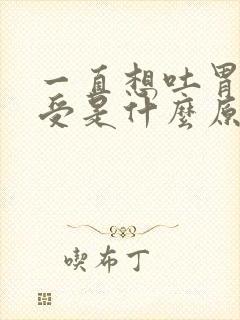 一直想吐胃
受是什麼原
喫布丁